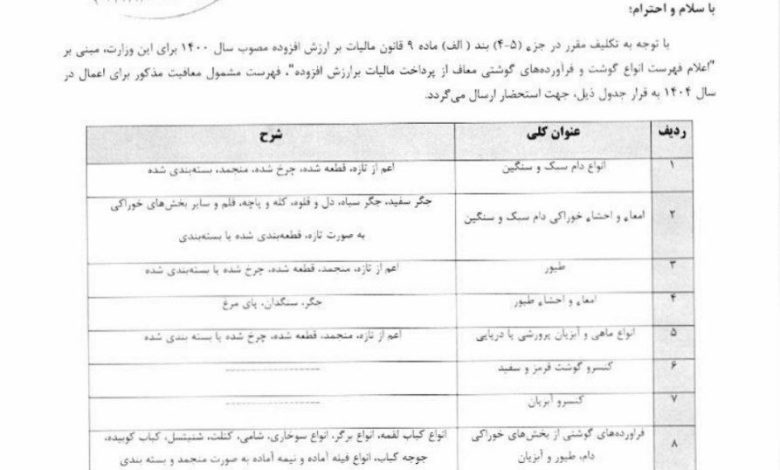 با سلام و احترام؛
با توجه به تکلیف مقرر در جزء (۵-۴) بند (الف) ماده ۹ قانون مالیات بر ارزش افزوده مصوب سال ۱۴۰۰ برای این وزارت، مبنی بر
"اعلام فهرست انواع گوشت و فرآورده‌های گوشتی معاف از پرداخت مالیات برارزش افزوده"، فهرست مشمول معافیت مذکور برای اعمال در
سال ۱۴۰۴ به قرار جدول ذیل، جهت استحضار ارسال می‌گردد.
ردیف عنوان کلی شرح
۱ انواع دام سبک و سنگین اعم از تازه، قطعه شده، چرخ شده، منجمد، بسته‌بندی شده
۲ امعاء و احشاء خوراکی دام سبک و سنگین جگر سفید، جگر سیاه، دل و قلوه، کله و پاچه، قلم و سایر بخش‌های خوراکی
به صورت تازه، قطعه‌بندی شده یا بسته‌بندی
۳ طیور اعم از تازه، منجمد، قطعه شده، چرخ شده یا بسته‌بندی شده
۴ امعاء و احشاء طیور جگر، سنگدان، پای مرغ
۵ انواع ماهی و آبزیان پرورشی یا دریایی اعم از تازه، منجمد، قطعه شده، چرخ شده یا بسته بندی شده
۶ کنسرو گوشت قرمز و سفید ---------------
۷ کنسرو آبزیان ---------------
۸ فراورده‌های گوشتی از بخش‌های خوراکی انواع کباب لقمه، انواع برگر، انواع سوخاری، شامی، کتلت، شنیتسل، کباب کوبیده،
دام، طیور و آبزیان جوجه کباب، انواع فیله آماده و نیمه آماده به صورت منجمد و بسته بندی